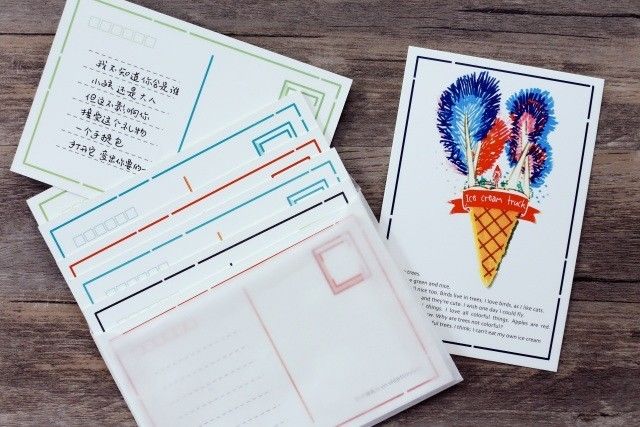 我不知道你会是谁
小孩还是大人
但这不影响你
接受这个礼物
一个手提包
打开它 变出你要的
Ice cream truck
trees.
e green and nice.
nice too. Birds live in trees, I love birds, as I like cats.
and they're cute. I wish one day I could fly
things. I love all colorful things. Apples are red
w. Why are trees not colorful?
ful trees. I think: I can't eat my own ice cream